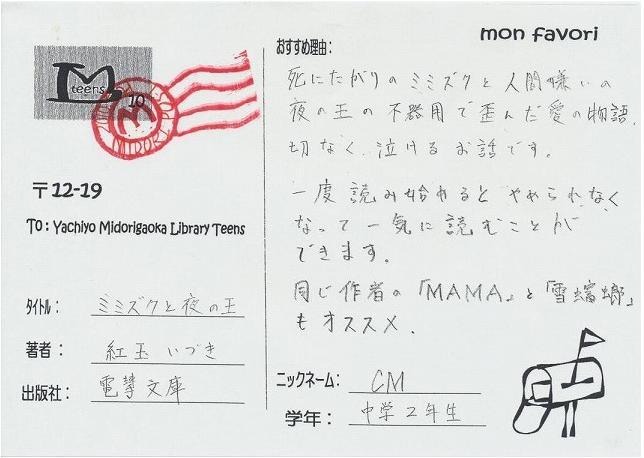 mon favori
M
teens
10
MIDORI
〒12-19
To : Yachiyo Midorigaoka Library Teens
タイトル： ミミズクと夜の王
著者： 紅玉いづき
出版社： 電撃文庫
おすすめ理由：
死にたがりのミミズクと人間嫌いの
夜の王の不器用で歪んだ愛の物語。
切なく、泣けるお話です。
一度読み始めるとやめられなく
なって一気に読むことが
できます。
同じ作者の「MAMA」と「雪蟷螂」
もオススメ。
ニックネーム： CM
学年： 中学2年生